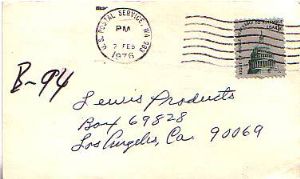 U.S. POSTAL SERVICE, WA 981
PM
2 FEB
1976
B-94
Lewis Products
Box 69828
Los Angeles, Ca. 90069